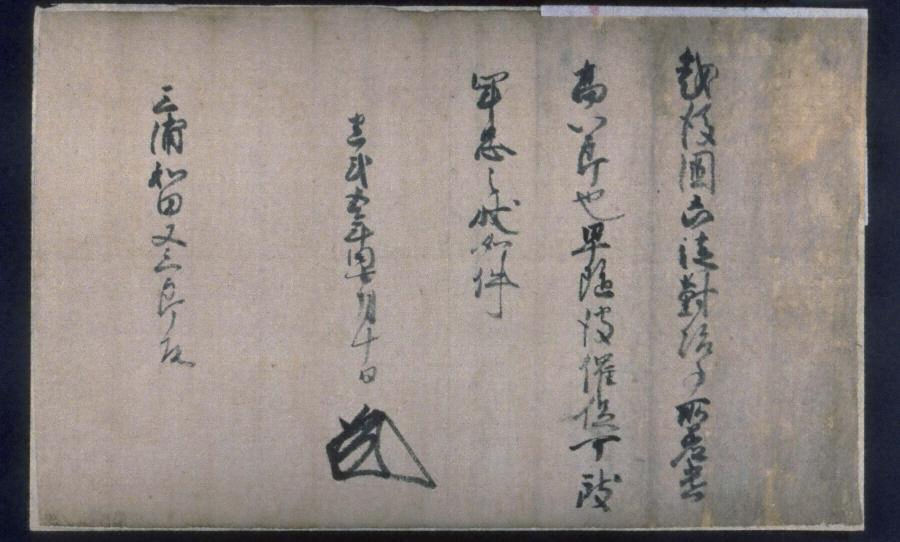 越後國凶徒對治事所差遣
高八郎也早随彼催促可致
軍忠之状如件
建武五年閏七月十日
三浦和田又三郎殿